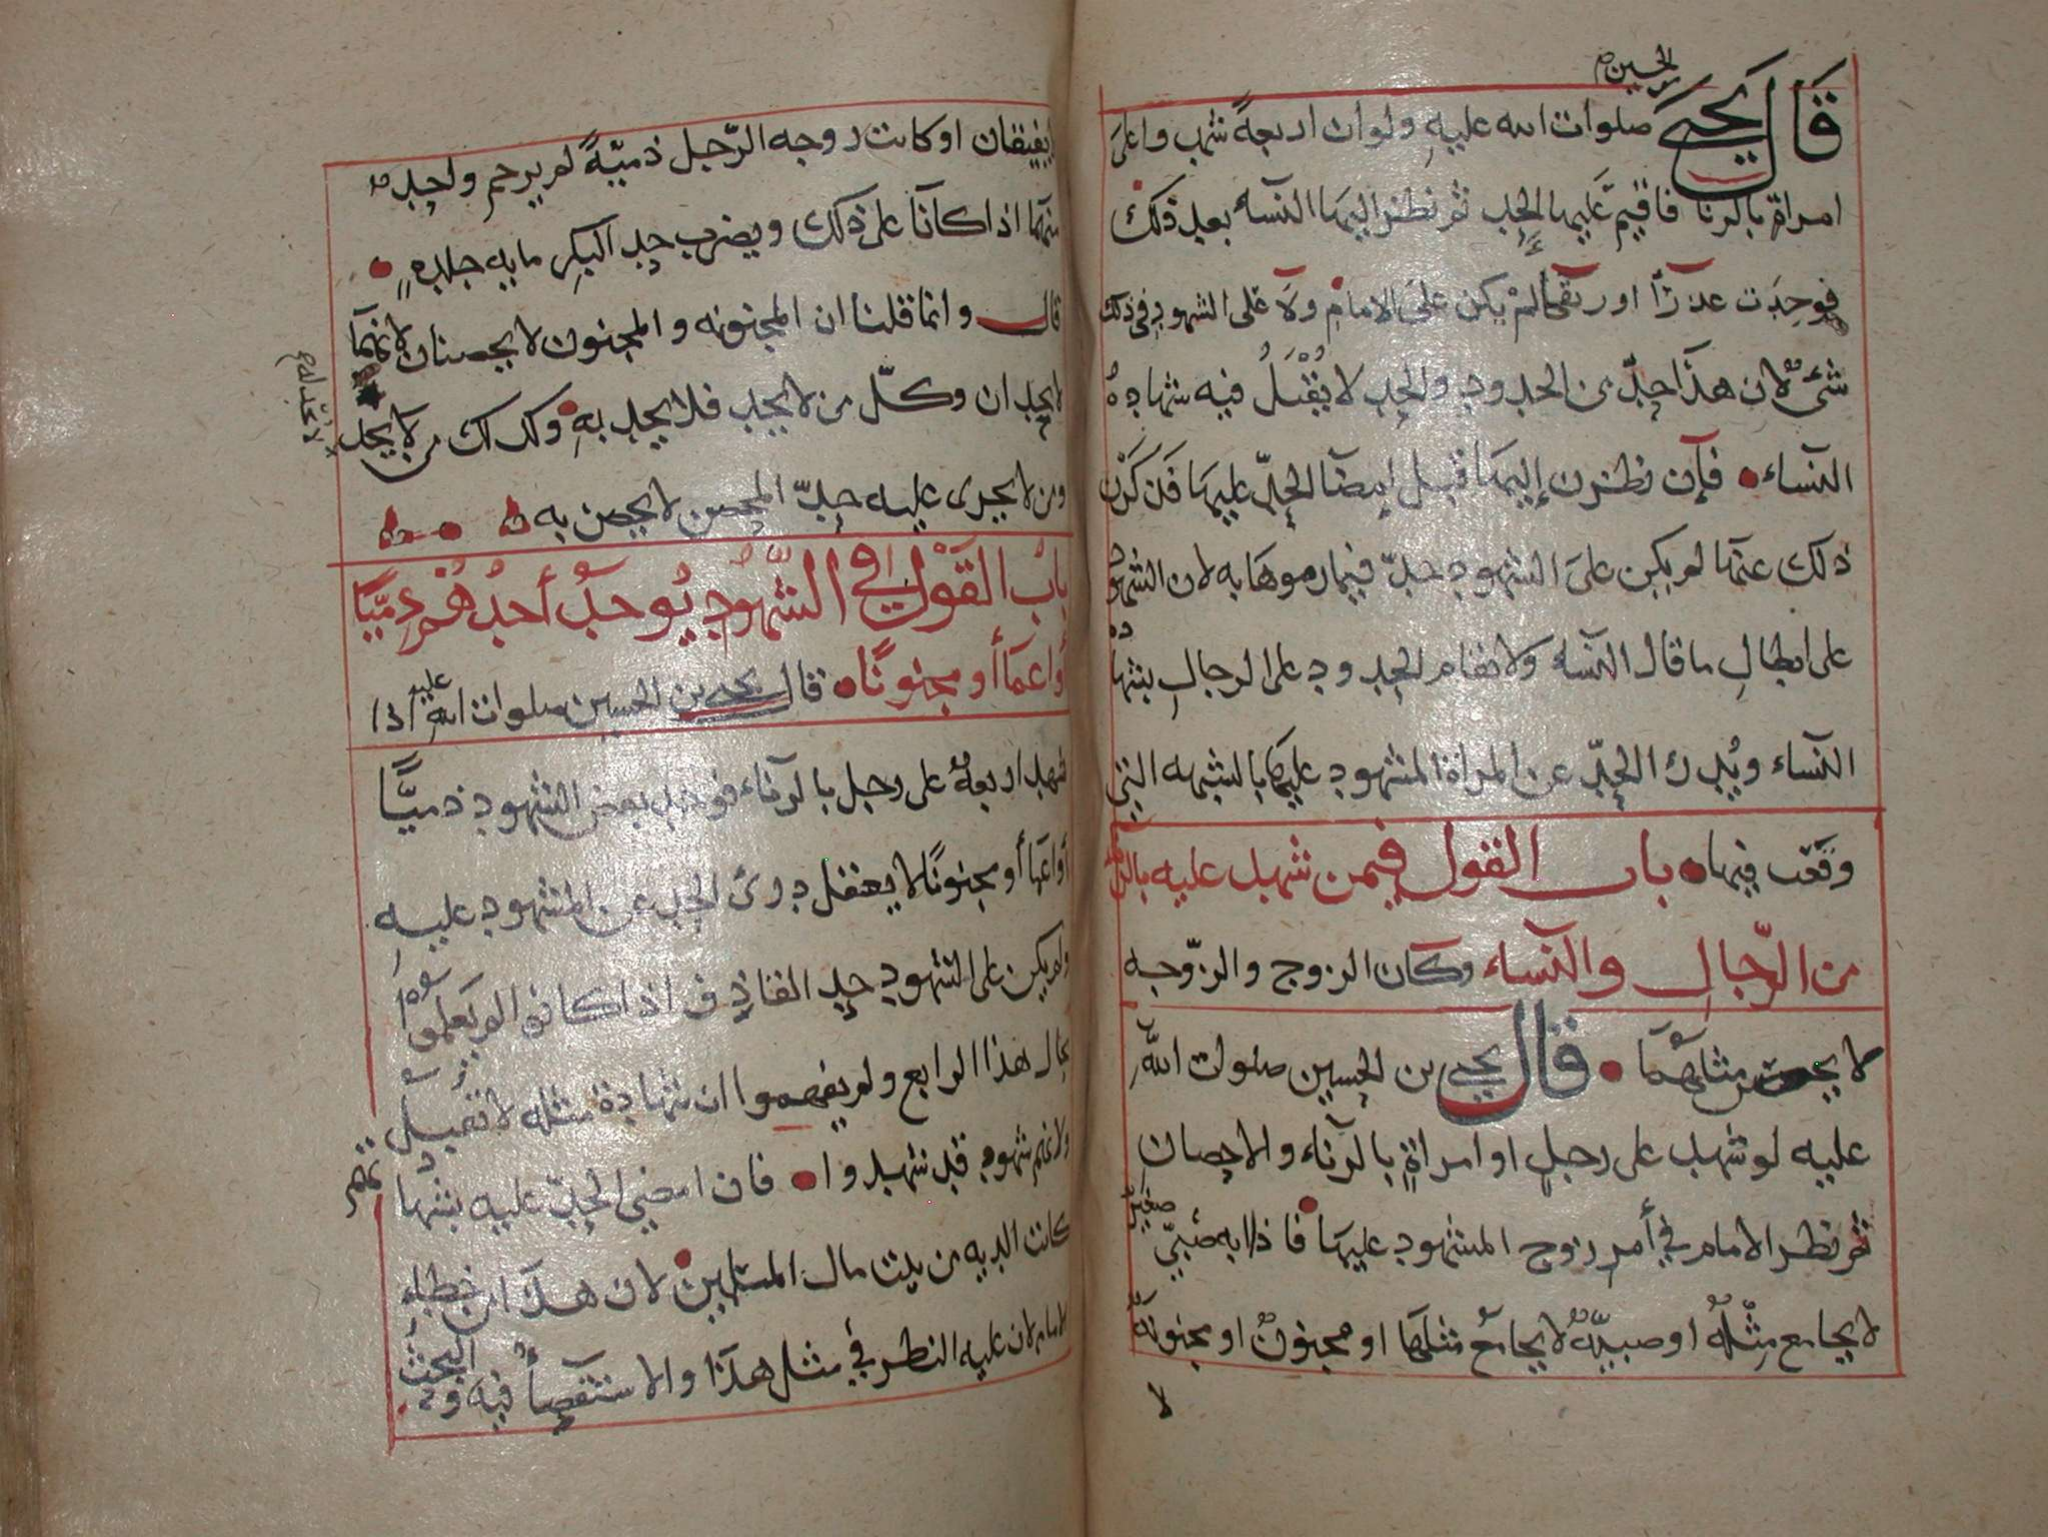 الحسين
قال يحيى صلوات الله عليه ولو ان اربعة شهدوا على
امراة بالزنا فاقيم عليها الحد ثم نظر اليها النساء بعد ذلك
فوجدت عذرآ او رتقى لم يكن على الامام ولا على الشهود في ذلك
شئ لان هذا حد من الحدود والحد لا يقبل فيه شهادة
النساء فإن نظرن إليها قبل امضآ الحد عليها فذكرن
ذلك عنها لم يكن على الشهود حد فيما رموها به لان الشهود
على ابطال ما قال النساء ولا تقام الحدود على الرجال بشهادة
النساء ويدرك الحد عن المراة المشهود عليها بالشبهه التي
وقعت فيها باب القول فيمن شهد عليه بالزنا
من الرجال والنساء وكان الزوج والزوجه
لا يحصن مثلهما قال يحيى بن الحسين صلوات الله
عليه لو شهد على رجل او امراة بالزناء والاحصان
ثم نظر الامام في أمر زوج المشهود عليها فاذا به صبي صغير
لا يجامع مثله او صبية لا يجامع مثلها او مجنون او مجنونة
لا
لا يفيقان او كانت زوجه الرجل ذمية لم يرجم واحد
منهما اذا كانا على ذلك ويضرب حد البكر مايه جلده
قال وانما قلنا ان المجنونه والمجنون لا يحصنان لانهما
لا يحدان وكل من لا يحد فلا يحد به وكذلك من لا يحد
ومن لا يجرى عليه حد المحصن لا يحصن به
باب القول في الشهود يوجد أحدهم ذميا
أو اعمآ أو مجنونا قال يحيى بن الحسين صلوات الله عليه اذا
شهد اربعة على رجل بالزناء فوجد بعض الشهود ذميا
أو اعمآ أو مجنونا لا يعقل درئ الحد عن المشهود عليه
ولم يكن على الشهود حد القاذف اذا كانوا لم يعلموا
بحال هذا الرابع ولم يفهموا ان شهادة مثله لا تقبل
ولا انهم شهود قد شهدوا فان امضي الحد عليه بشهادتهم
كانت الديه من بيت مال المسلمين لان هذا من خطاء
الامام لان عليه النظر في مثل هذا والاستقصآ فيه والبحث